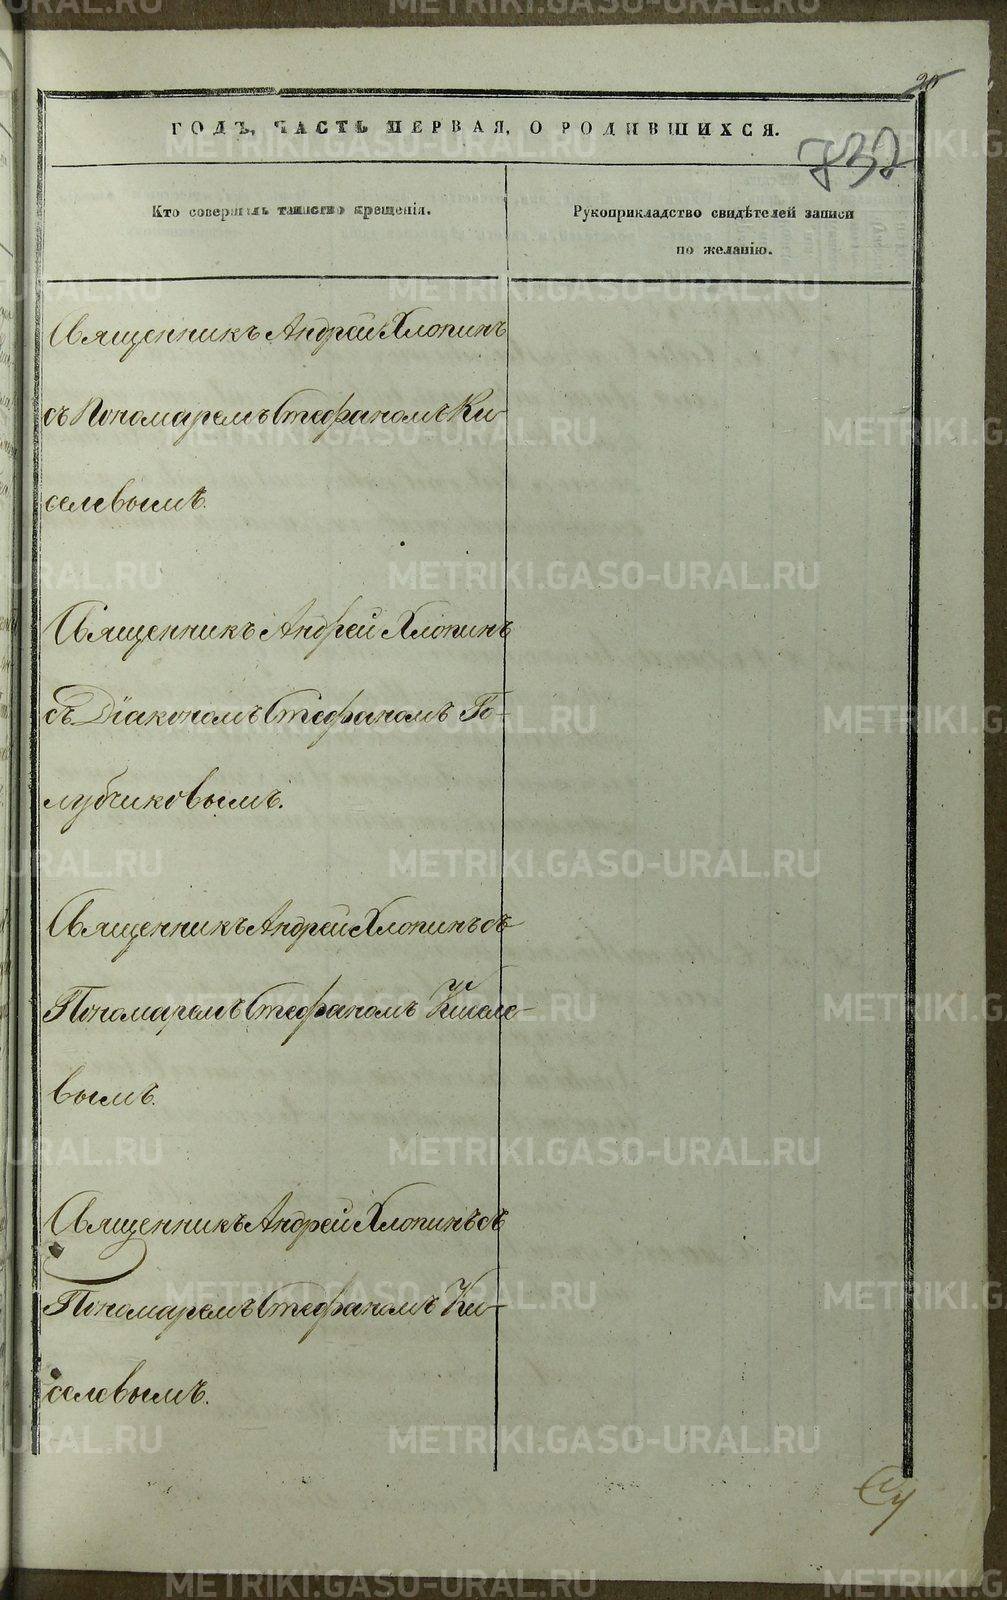 ГОДЪ, ЧАСТЬ ПЕРВАЯ, О РОДИВШИХСЯ.
732
Кто совершалъ таинство крещенія.
Рукоприкладство свидѣтелей записи
по желанію.
Священникъ Андрей Хлопинъ
съ Пономаремъ Стефаномъ Ки-
селевымъ.
Священникъ Андрей Хлопинъ
съ Діакономъ Стефаномъ Го-
лубчиковымъ.
Священникъ Андрей Хлопинъ съ
Пономаремъ Стефаномъ Киселе-
вымъ.
Священникъ Андрей Хлопинъ съ
Пономаремъ Стефаномъ Ки-
селевымъ.
METRIKI.GASO-URAL.RU